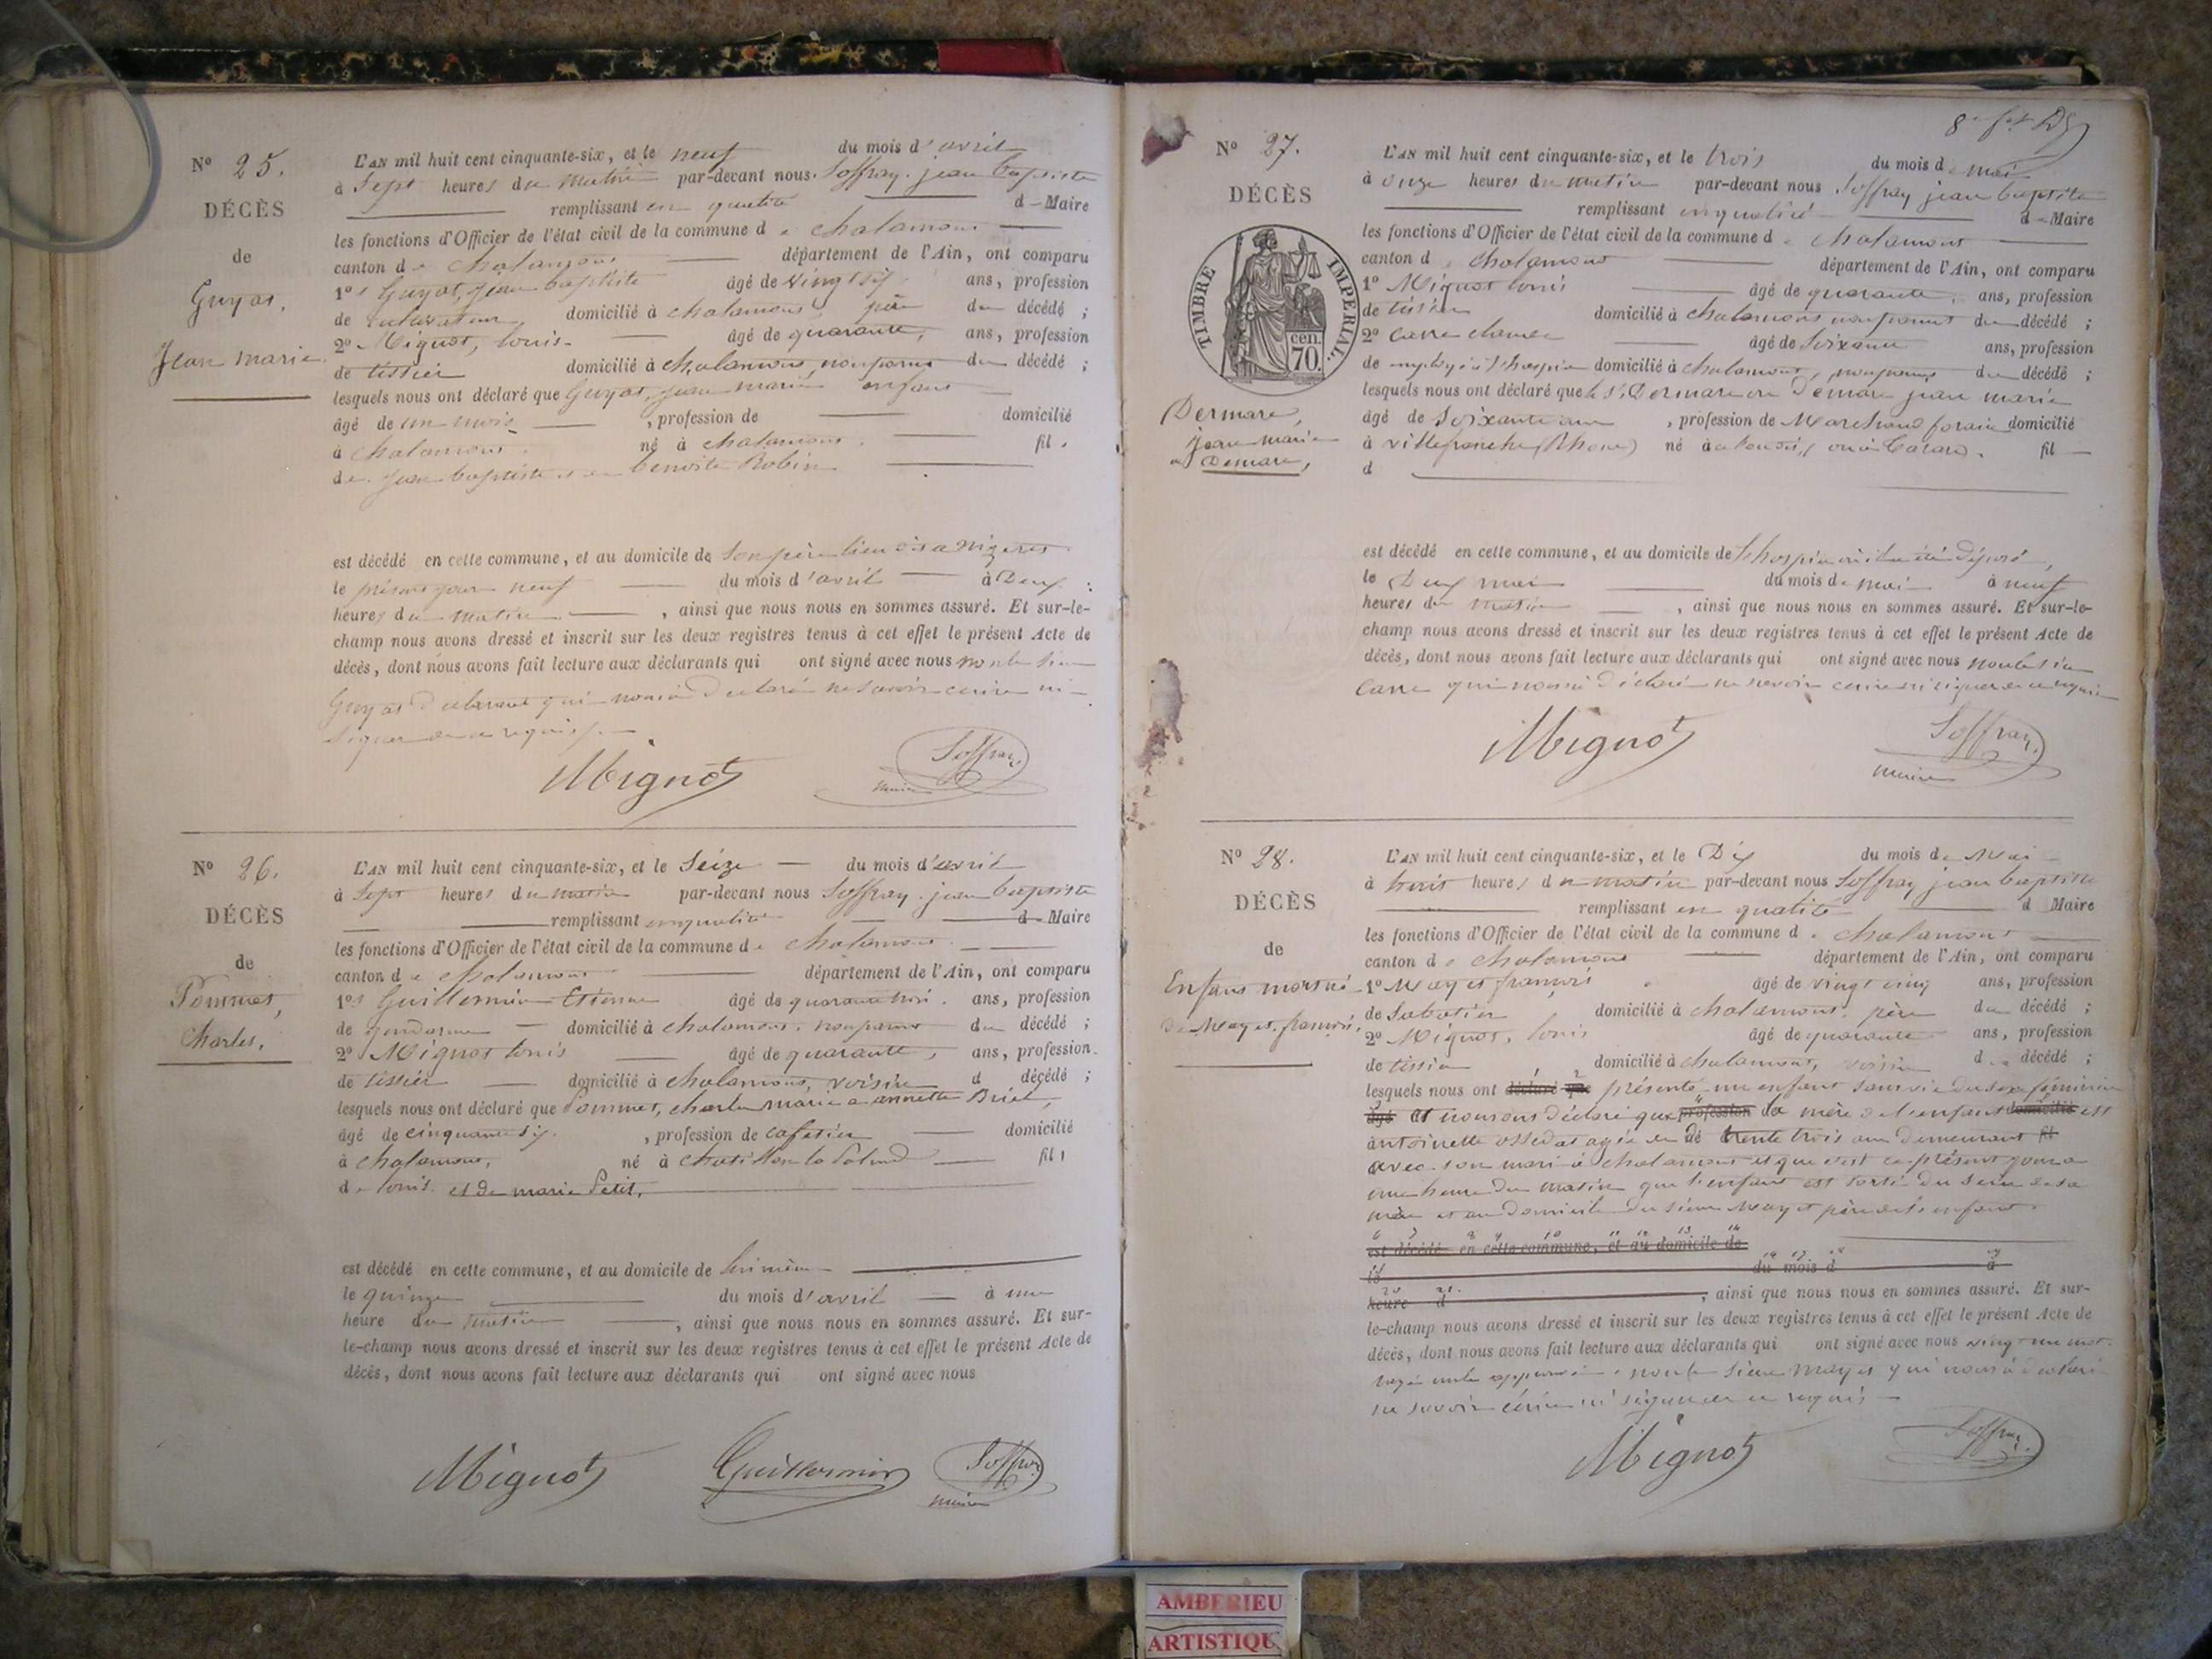 N° 25.
DÉCÈS
de
Guyat,
Jean marie
L'AN mil huit cent cinquante-six, et le neuf du mois d'avril
à Sept heures du matin par-devant nous Soffray jean baptiste
remplissant en qualité d Maire
les fonctions d'Officier de l'état civil de la commune de chalamont
canton de chalamont département de l'Ain, ont comparu
1° Guyat, jean baptiste âgé de vingt six ans, profession
de cultivateur domicilié à chalamont père du décédé ;
2° Mignot, louis âgé de quarante, ans, profession
de tissier domicilié à chalamont, non parent du décédé ;
lesquels nous ont déclaré que Guyat, jean marie enfant
âgé de un mois , profession de domicilié
à chalamont né à chalamont fils
de jean baptiste et de benoite Robin
est décédé en cette commune, et au domicile de Son père lieu
le présent jour neuf du mois d'avril à Deux
heures du matin , ainsi que nous nous en sommes assuré. Et sur-le-
champ nous avons dressé et inscrit sur les deux registres tenus à cet effet le présent Acte de
décès, dont nous avons fait lecture aux déclarants qui ont signé avec nous non le sieur
Guyat déclarant qui nous a déclaré ne savoir écrire ni
signer de ce requis.
Mignot Soffray
maire
N° 26.
DÉCÈS
de
Pommet,
Charles,
L'AN mil huit cent cinquante-six, et le Seize du mois d'avril
à Sept heures du matin par-devant nous Soffray jean baptiste
remplissant en qualité d Maire
les fonctions d'Officier de l'état civil de la commune de chalamont
canton de chalamont département de l'Ain, ont comparu
1° Guillermin Etienne âgé de quarante trois ans, profession
de gendarme domicilié à chalamont, non parent du décédé ;
2° Mignot louis âgé de quarante, ans, profession
de tissier domicilié à chalamont, voisin d décédé ;
lesquels nous ont déclaré que Pommet, charles marié a annette Briel,
âgé de cinquante six , profession de cafetier domicilié
à chalamont, né à chatillon la Palud fils
de louis et de marie Petit,
est décédé en cette commune, et au domicile de lui même
le quinze du mois d'avril à une
heure du matin , ainsi que nous nous en sommes assuré. Et sur-
le-champ nous avons dressé et inscrit sur les deux registres tenus à cet effet le présent Acte de
décès, dont nous avons fait lecture aux déclarants qui ont signé avec nous
Mignot Guillermin Soffray
maire
N° 27.
DÉCÈS
TIMBRE IMPERIAL.
70 cen.
Dermare,
jean marie
ou Demare,
L'AN mil huit cent cinquante-six, et le trois du mois de mai
à onze heures du matin par-devant nous Soffray jean baptiste
remplissant en qualité d Maire
les fonctions d'Officier de l'état civil de la commune de chalamont
canton de chalamont département de l'Ain, ont comparu
1° Mignot louis âgé de quarante, ans, profession
de tissier domicilié à chalamont non parent du décédé ;
2° Carre âgé de Soixante ans, profession
de employé à l'hospice domicilié à chalamont, non parent du décédé ;
lesquels nous ont déclaré que le Sr Dermare ou Demare jean marie
âgé de Soixante ans , profession de Marchand forain domicilié
à villefranche (Rhone) né à ou à Tarare. fil
d
est décédé en cette commune, et au domicile de l'hospice où il a été déposé,
le Deux mai du mois de mai à neuf
heures du matin , ainsi que nous nous en sommes assuré. Et sur-le-
champ nous avons dressé et inscrit sur les deux registres tenus à cet effet le présent Acte de
décès, dont nous avons fait lecture aux déclarants qui ont signé avec nous non le sieur
Carre qui nous a déclaré ne savoir écrire ni signer de ce requis
Mignot Soffray
maire
N° 28.
DÉCÈS
de
Enfant mort né
de Mayet françois,
L'AN mil huit cent cinquante-six, et le Dix du mois de Mai
à trois heures du matin par-devant nous Soffray jean baptiste
remplissant en qualité d Maire
les fonctions d'Officier de l'état civil de la commune de chalamont
canton de chalamont département de l'Ain, ont comparu
1° Mayet françois âgé de vingt cinq ans, profession
de Sabotier domicilié à chalamont, père du décédé ;
2° Mignot, louis âgé de quarante ans, profession
de tissier domicilié à chalamont, voisin d décédé ;
lesquels nous ont déclaré que présenté un enfant sans vie du sexe féminin
âgé et nous ont déclaré que profession la mère de l'enfant domicilié est
antoinette agée de trente trois ans demeurant fil
avec son mari à chalamont et que c'est ce présent jour a
une heure du matin que l'enfant est sorti du sein de sa
mère et au domicile du sieur Mayet père de l'enfant.
est décédé en cette commune, et au domicile de
le du mois d à
heure d , ainsi que nous nous en sommes assuré. Et sur-
le-champ nous avons dressé et inscrit sur les deux registres tenus à cet effet le présent Acte de
décès, dont nous avons fait lecture aux déclarants qui ont signé avec nous vingt un mot
rayé nuls approuvé non le Sieur Mayet qui nous a déclaré
ne savoir écrire ni signer de ce requis
Mignot Soffray
AMBERIEU
ARTISTIQU